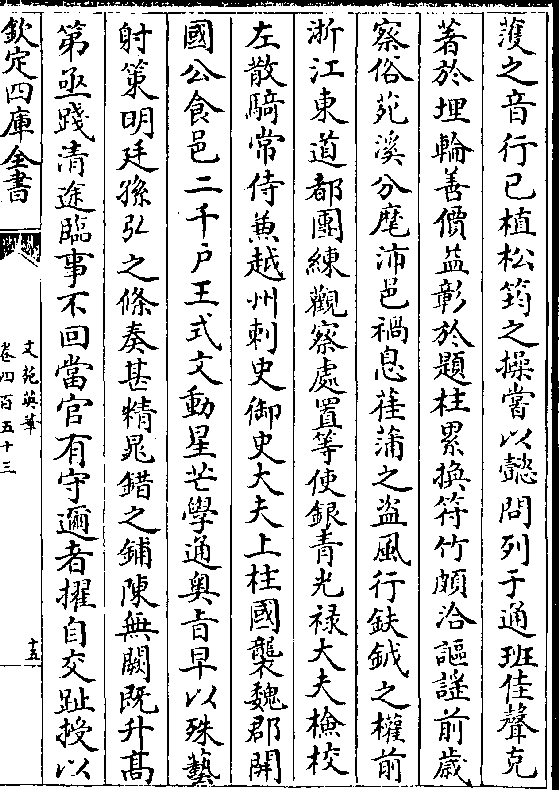 頀之音行已植松筠之操嘗以懿問列于通班佳聲克
著於埋輪善價益彰於題柱累換符竹頗洽謳謡前歳
察俗苑溪分麾沛邑禍息萑蒲之盗風行鈇鉞之權前
浙江東道都團練觀察處置等使銀青光禄大夫檢校
左散騎常侍兼越州刺史御史大夫上柱國襲魏郡開
國公食邑二千户王式文動星芒學通奥旨早以殊藝
射策明廷孫弘之條奏甚精晁錯之鋪陳無闕既升髙
第亟踐清途臨事不回當官有守邇者擢自交趾授以
欽定四庫全書
文苑英華
卷四百五十三
十五